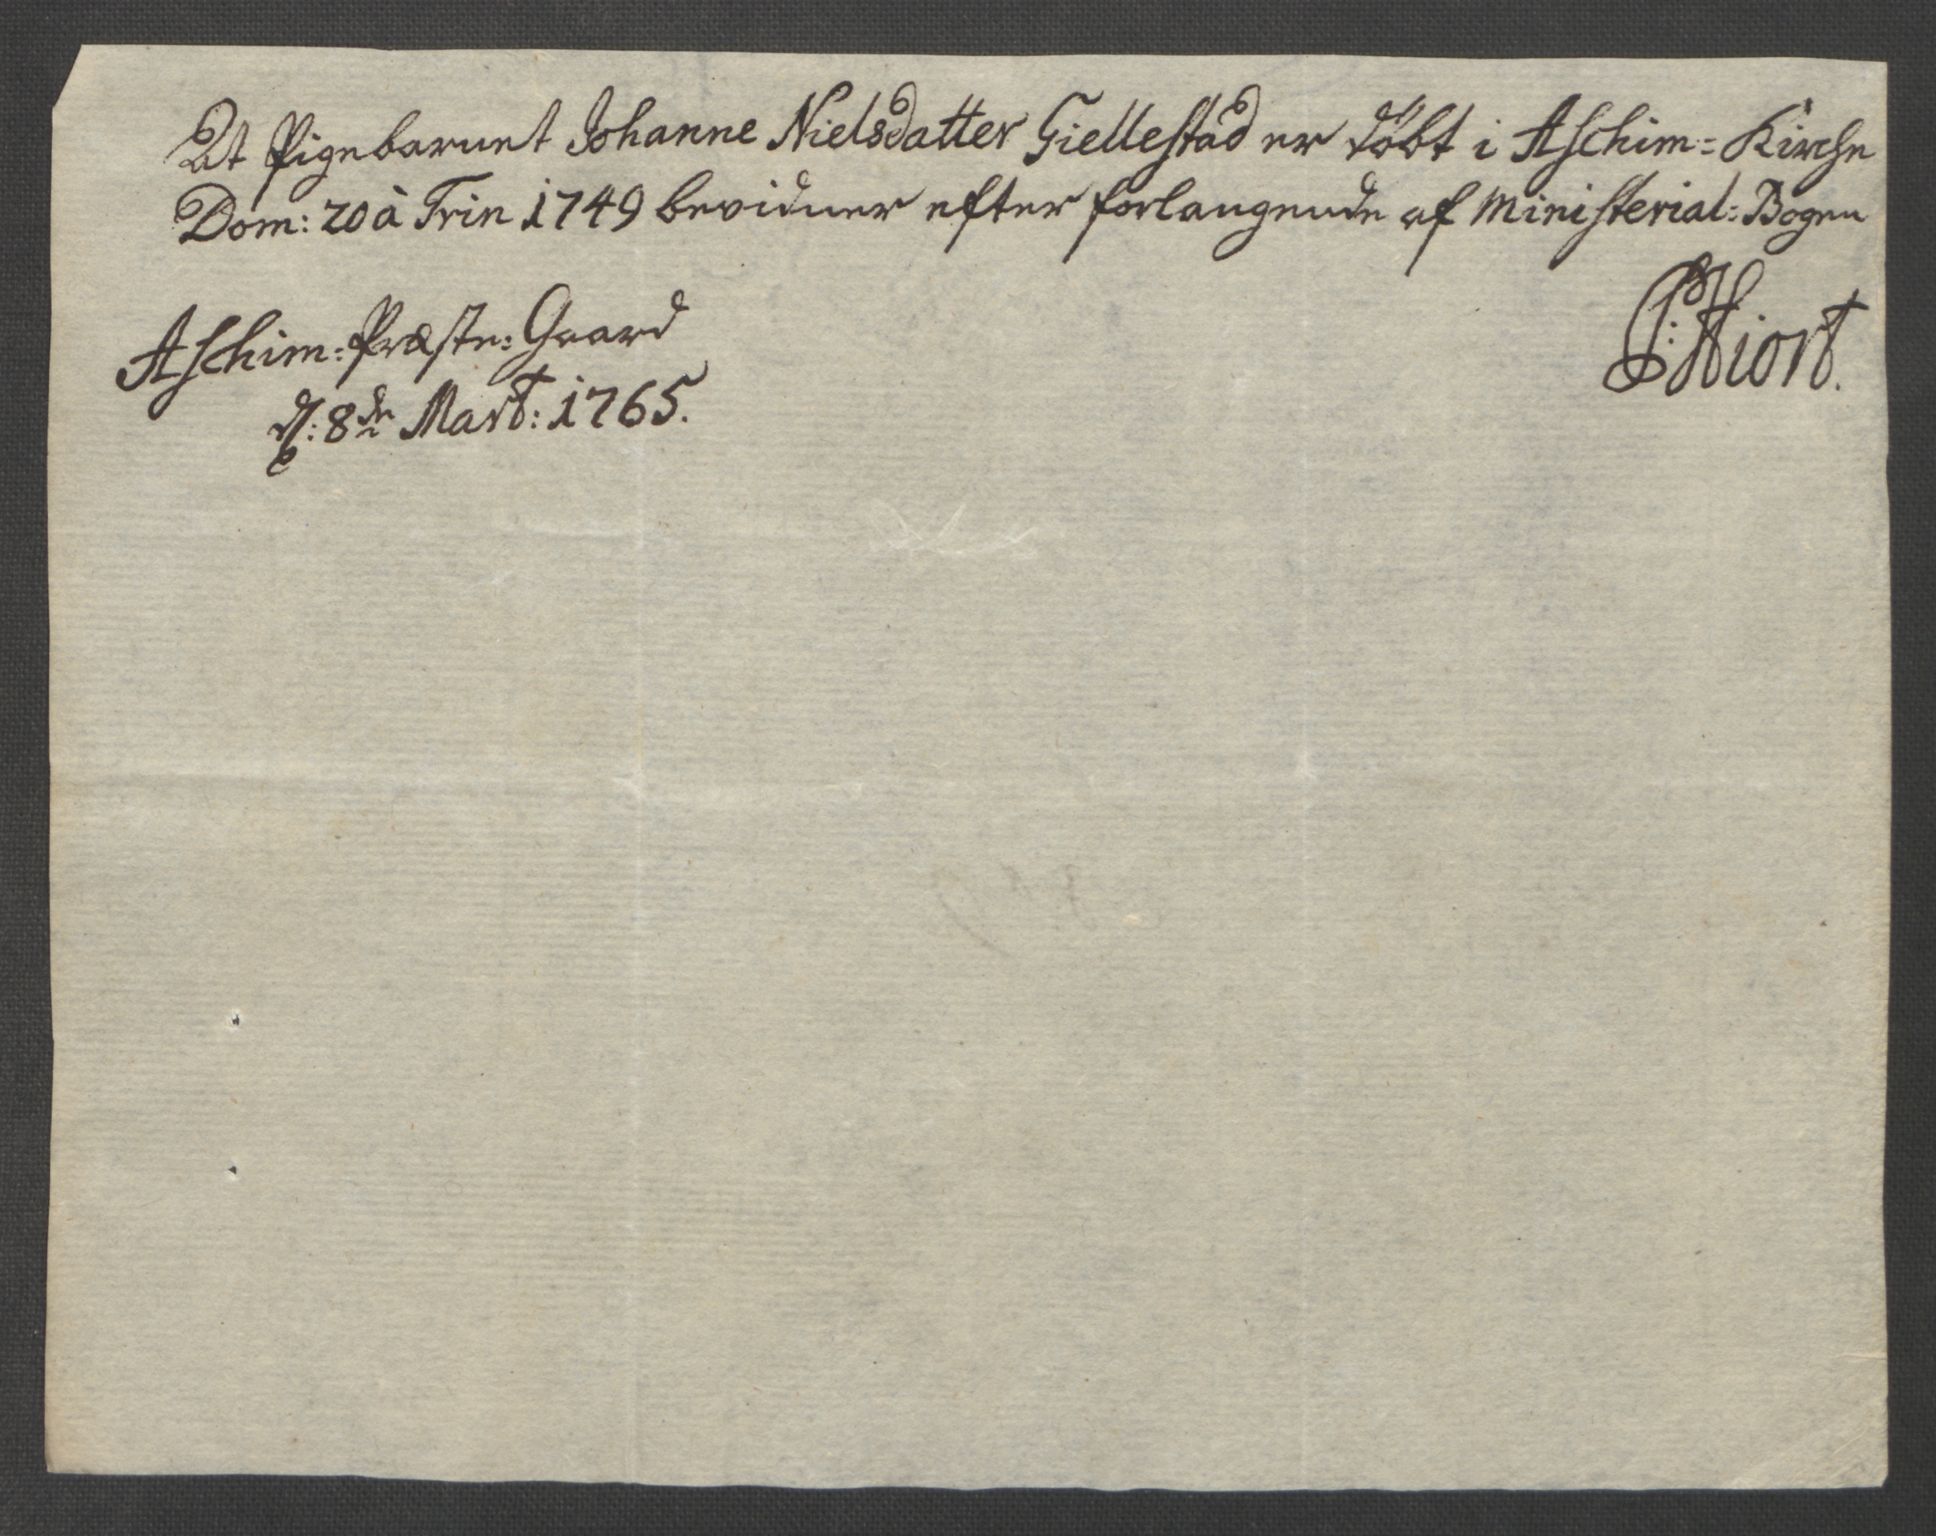 At Pigebarnet Johanne Nielsdatter Giellestad er döbt i Aschim=Kirche
Dom: 20 à Trin 1749 bevidner efter forlangende af Ministerial=Bogen
Aschim=Præste=Gaard
d: 8de Mart: 1765.
P: Hiort.